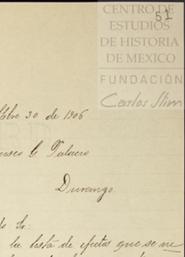 CENTRO DE
ESTUDIOS
DE HISTORIA
DE MEXICO
FUNDACIÓN
Carlos Slim
51
bre 30 de 1906
G. Palacio
Durango.
la lista de efectos que se